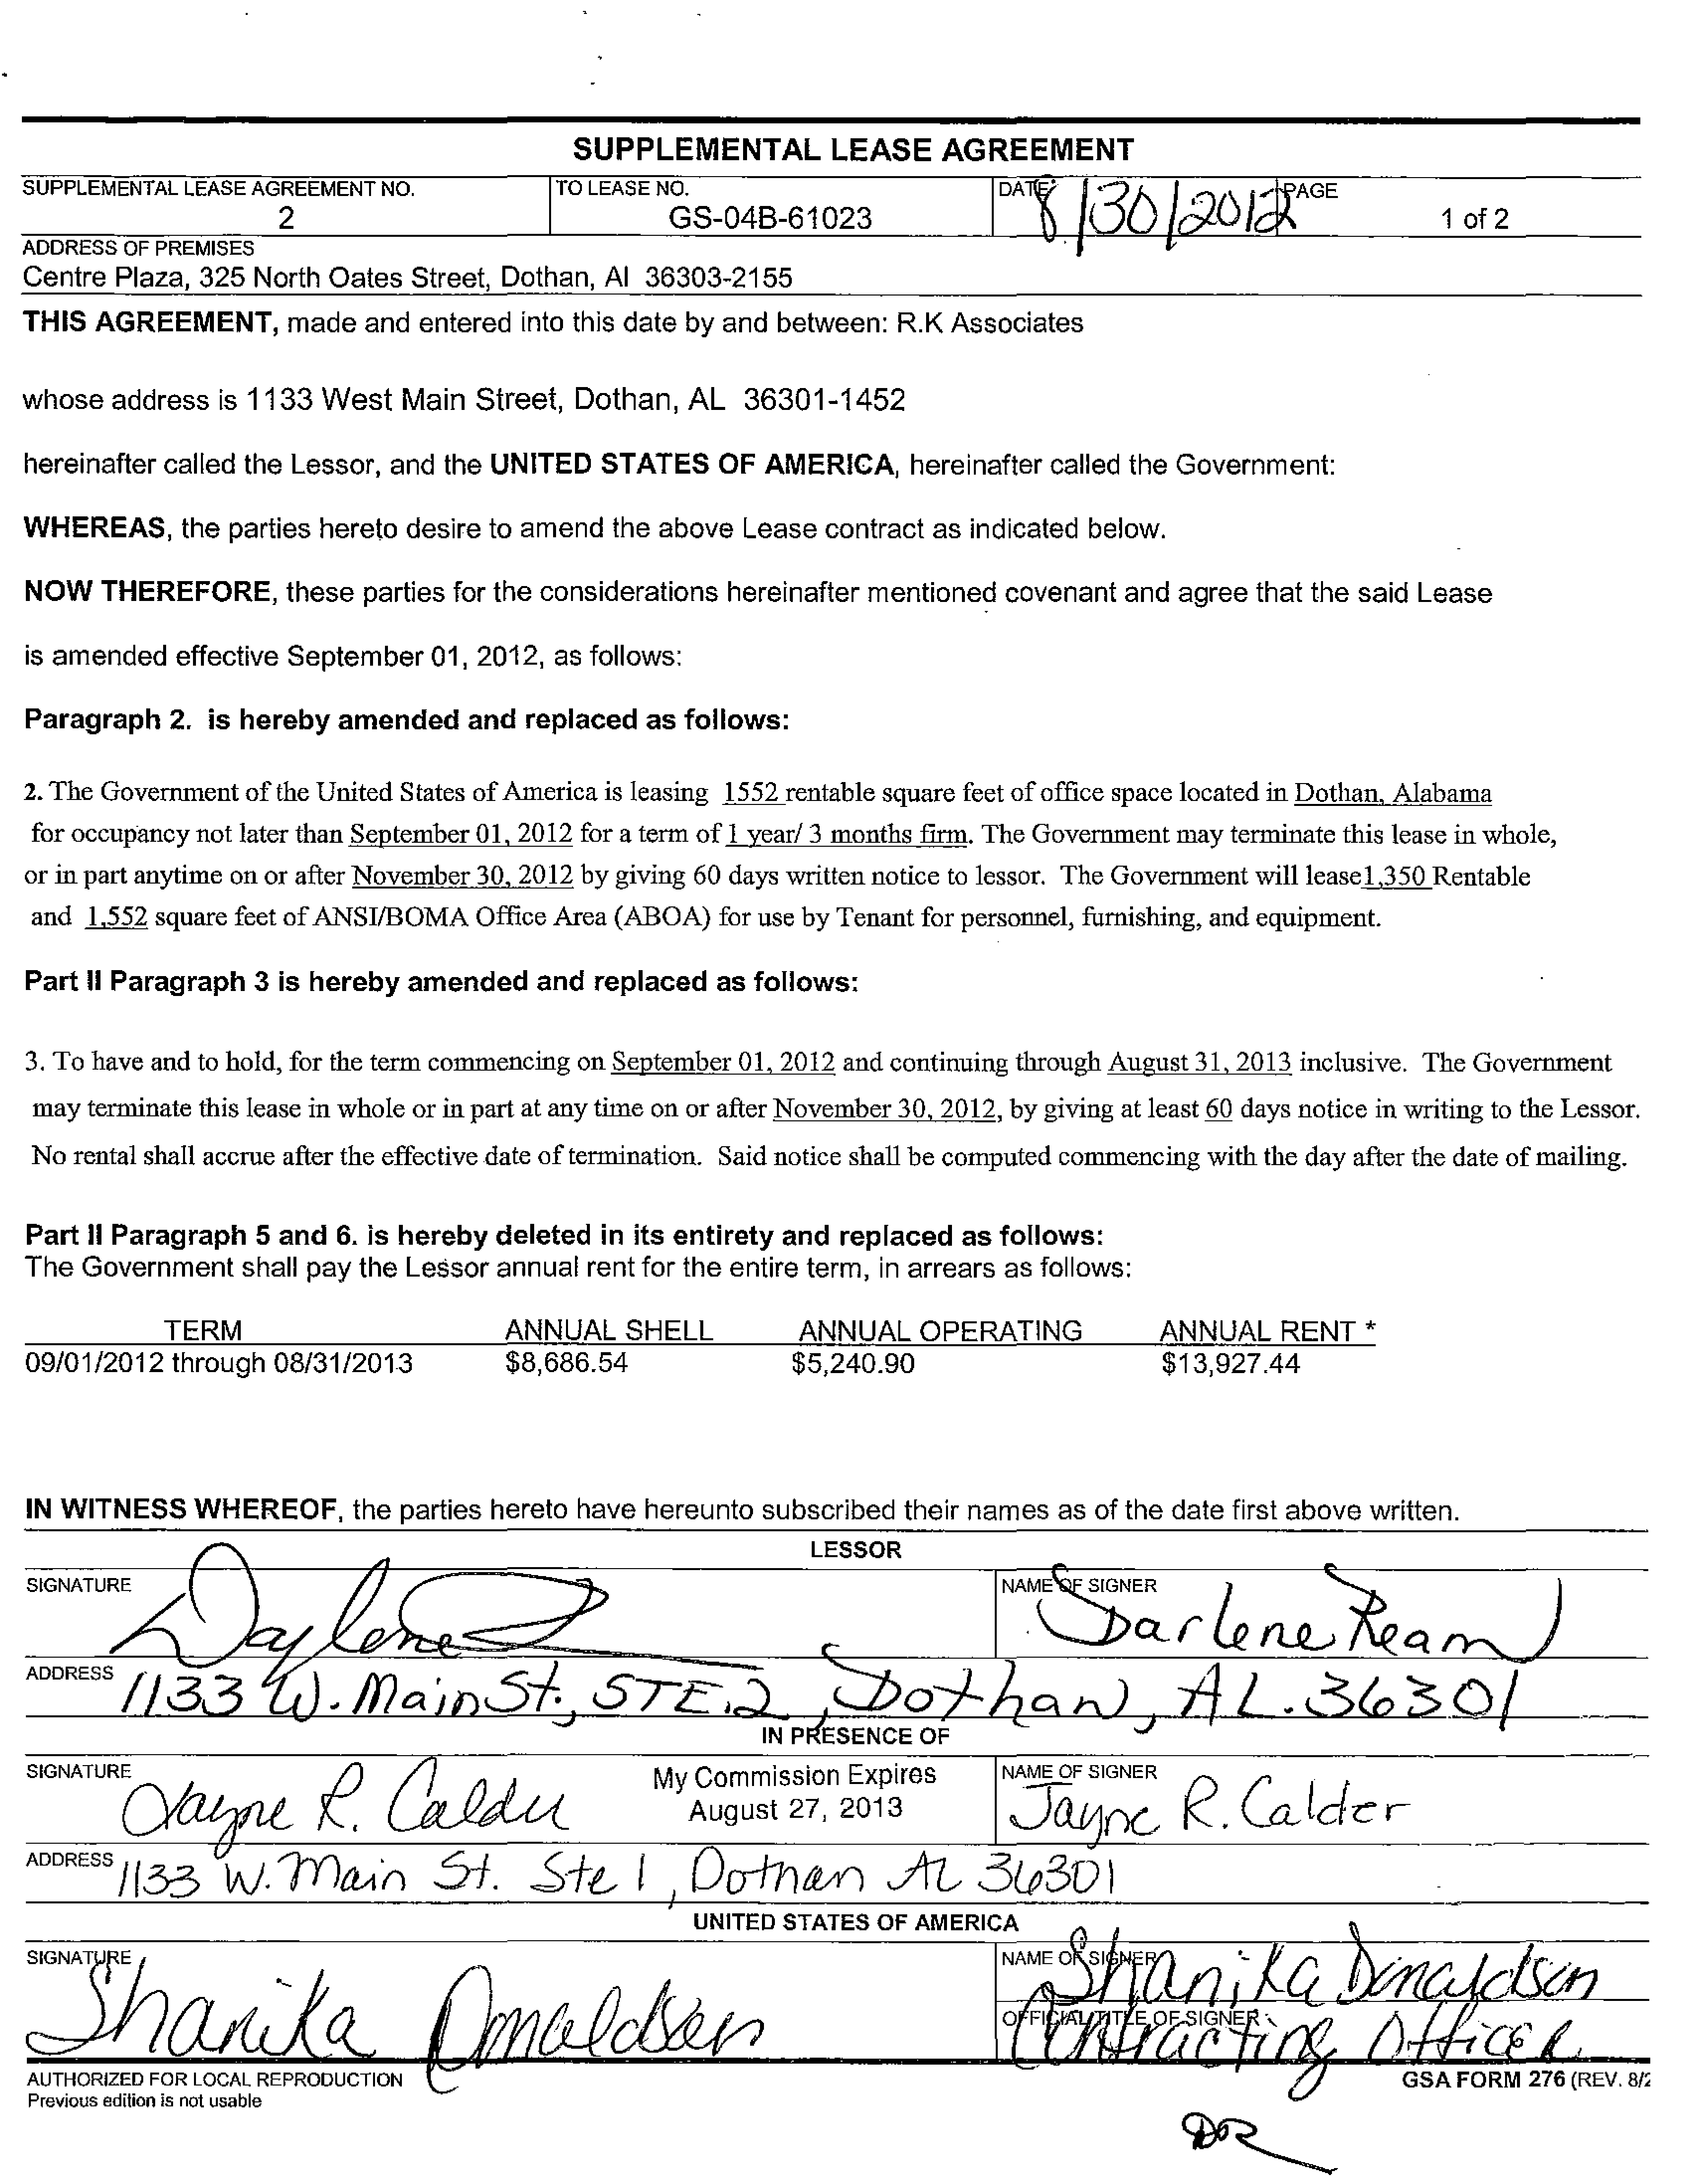 SUPPLEMENTAL LEASE AGREEMENT
SUPPLEMENTAL LEASE AGREEMENT NO. TO LEASE NO. DATE PAGE
2 GS-04B-61023 8/30/2012 1 of 2
ADDRESS OF PREMISES
Centre Plaza, 325 North Oates Street, Dothan, Al 36303-2155
THIS AGREEMENT, made and entered into this date by and between: R.K Associates
whose address is 1133 West Main Street, Dothan, AL 36301-1452
hereinafter called the Lessor, and the UNITED STATES OF AMERICA, hereinafter called the Government:
WHEREAS, the parties hereto desire to amend the above Lease contract as indicated below.
NOW THEREFORE, these parties for the considerations hereinafter mentioned covenant and agree that the said Lease
is amended effective September 01, 2012, as follows:
Paragraph 2. is hereby amended and replaced as follows:
2. The Government of the United States of America is leasing 1552 rentable square feet of office space located in Dothan, Alabama
for occupancy not later than September 01, 2012 for a term of 1 year/ 3 months firm. The Government may terminate this lease in whole,
or in part anytime on or after November 30, 2012 by giving 60 days written notice to lessor. The Government will lease1,350 Rentable
and 1,552 square feet of ANSI/BOMA Office Area (ABOA) for use by Tenant for personnel, furnishing, and equipment.
Part II Paragraph 3 is hereby amended and replaced as follows:
3. To have and to hold, for the term commencing on September 01, 2012 and continuing through August 31, 2013 inclusive. The Government
may terminate this lease in whole or in part at any time on or after November 30, 2012, by giving at least 60 days notice in writing to the Lessor.
No rental shall accrue after the effective date of termination. Said notice shall be computed commencing with the day after the date of mailing.
Part II Paragraph 5 and 6. is hereby deleted in its entirety and replaced as follows:
The Government shall pay the Lessor annual rent for the entire term, in arrears as follows:
TERM ANNUAL SHELL ANNUAL OPERATING ANNUAL RENT *
09/01/2012 through 08/31/2013 $8,686.54 $5,240.90 $13,927.44
IN WITNESS WHEREOF, the parties hereto have hereunto subscribed their names as of the date first above written.
LESSOR
SIGNATURE NAME OF SIGNER
Darlene Ream
ADDRESS 1133 W. Main St., STE.2, Dothan, AL. 36301
IN PRESENCE OF
SIGNATURE My Commission Expires NAME OF SIGNER
Jayne R. Calder August 27, 2013 Jayne R. Calder
ADDRESS 1133 W. Main St. Ste 1, Dothan AL 36301
UNITED STATES OF AMERICA
SIGNATURE NAME OF SIGNER Shanika Donaldson
Shanika Donaldson OFFICIAL TITLE OF SIGNER Contracting Officer
AUTHORIZED FOR LOCAL REPRODUCTION GSA FORM 276 (REV. 8/2
Previous edition is not usable